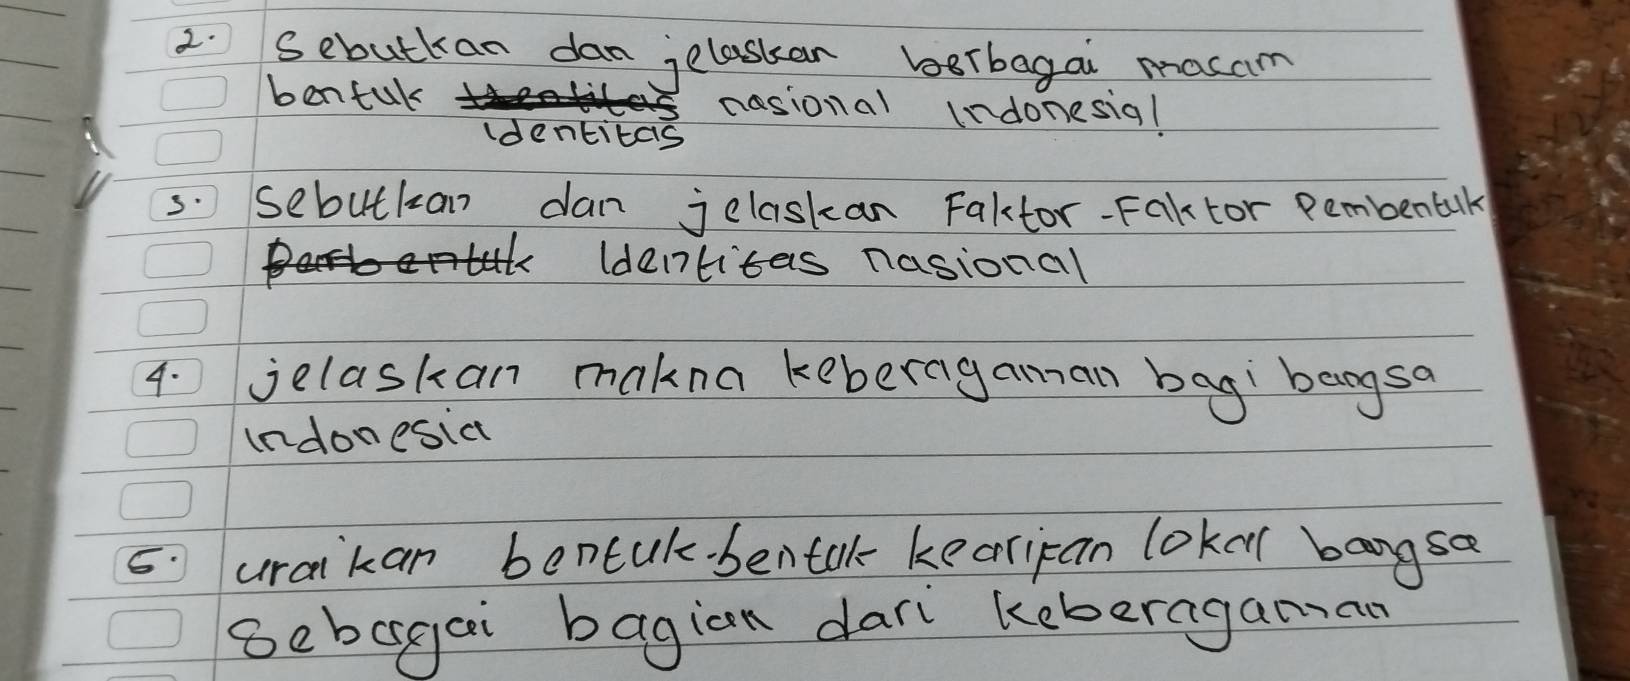 2. Sebutkan dan jelaskan berbagai macam
bentuk identitas nasional Indonesia!
3. Sebutkan dan jelaskan Faktor-Faktor Pembentuk
Identitas nasional
4. jelaskan makna keberagaman bagi bangsa
indonesia
5. uraikan bentuk-bentuk kearifan lokal bangsa
sebagai bagian dari keberagaman